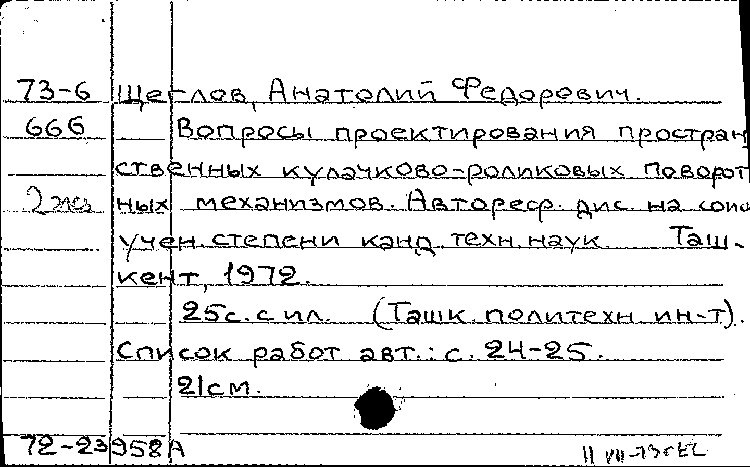 73-6 Щеглов, Анатолий Федорович.
666 Вопросы проектирования простран
ственных кулачково-роликовых поворот
2 экз ных механизмов. Автореф. дис. на соис
учен. степени канд. техн. наук Таш-
кент, 1972.
25с. с ил. (Ташк. политехн. ин-т).
Список работ авт.: с. 24-25.
21см.
72-23958А